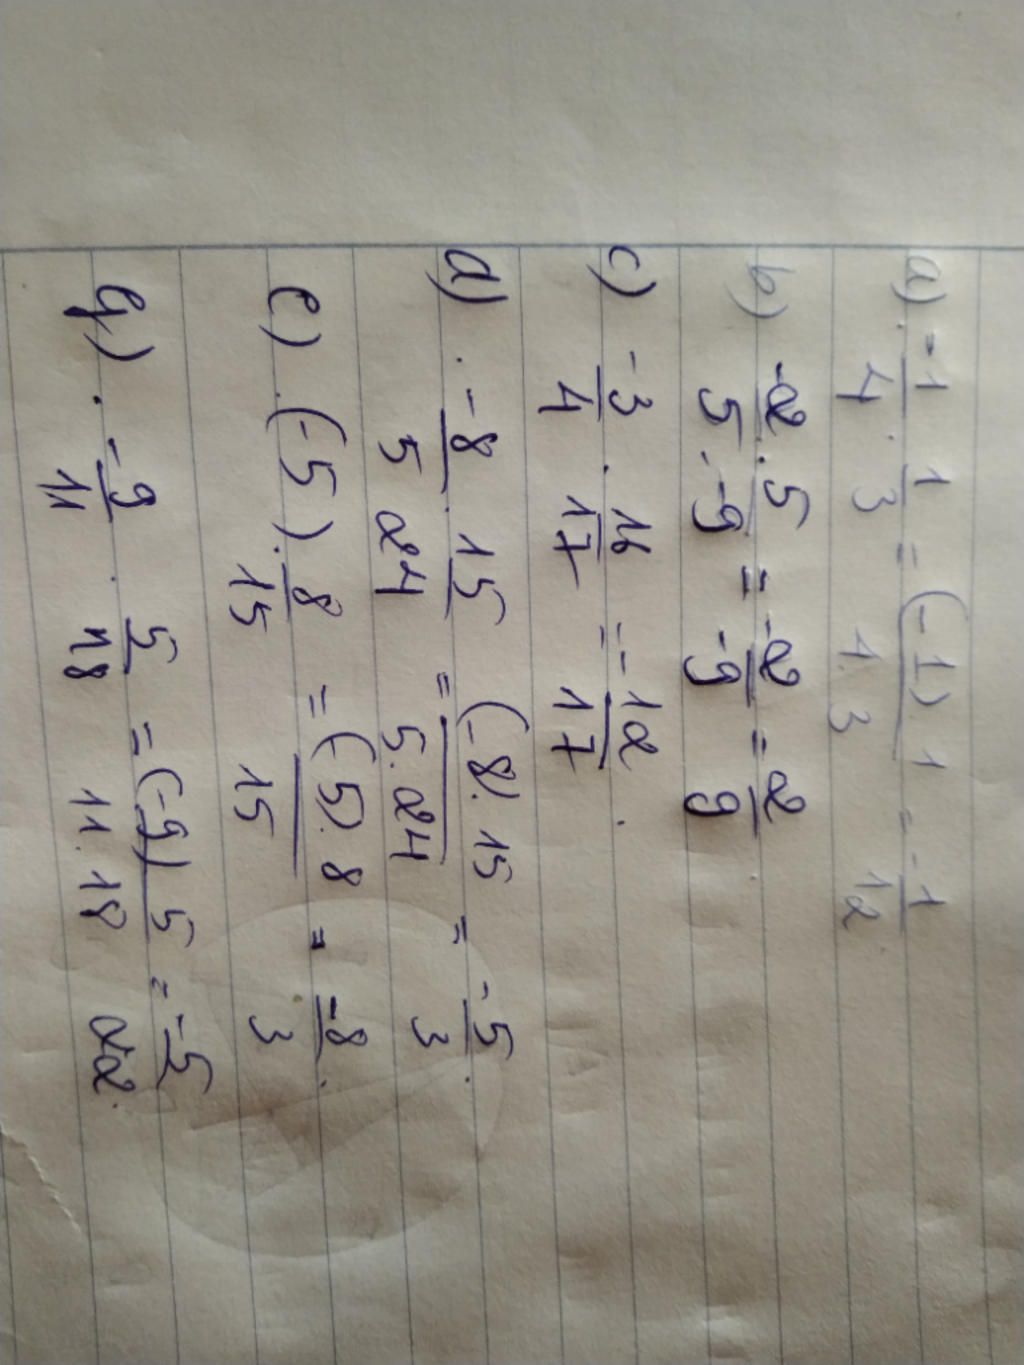 a) -1/4 . 1/3 = (-1).1/4.3 = -1/12
b) -2/5 . 5/-9 = -2/-9 = 2/9
c) -3/4 . 16/17 = -12/17.
d) -8/5 . 15/24 = (-8).15/5.24 = -5/3.
e) (-5). 8/15 = (-5).8/15 = -8/3.
g) -9/11 . 5/18 = (-9) 5/11.18 = -5/22.